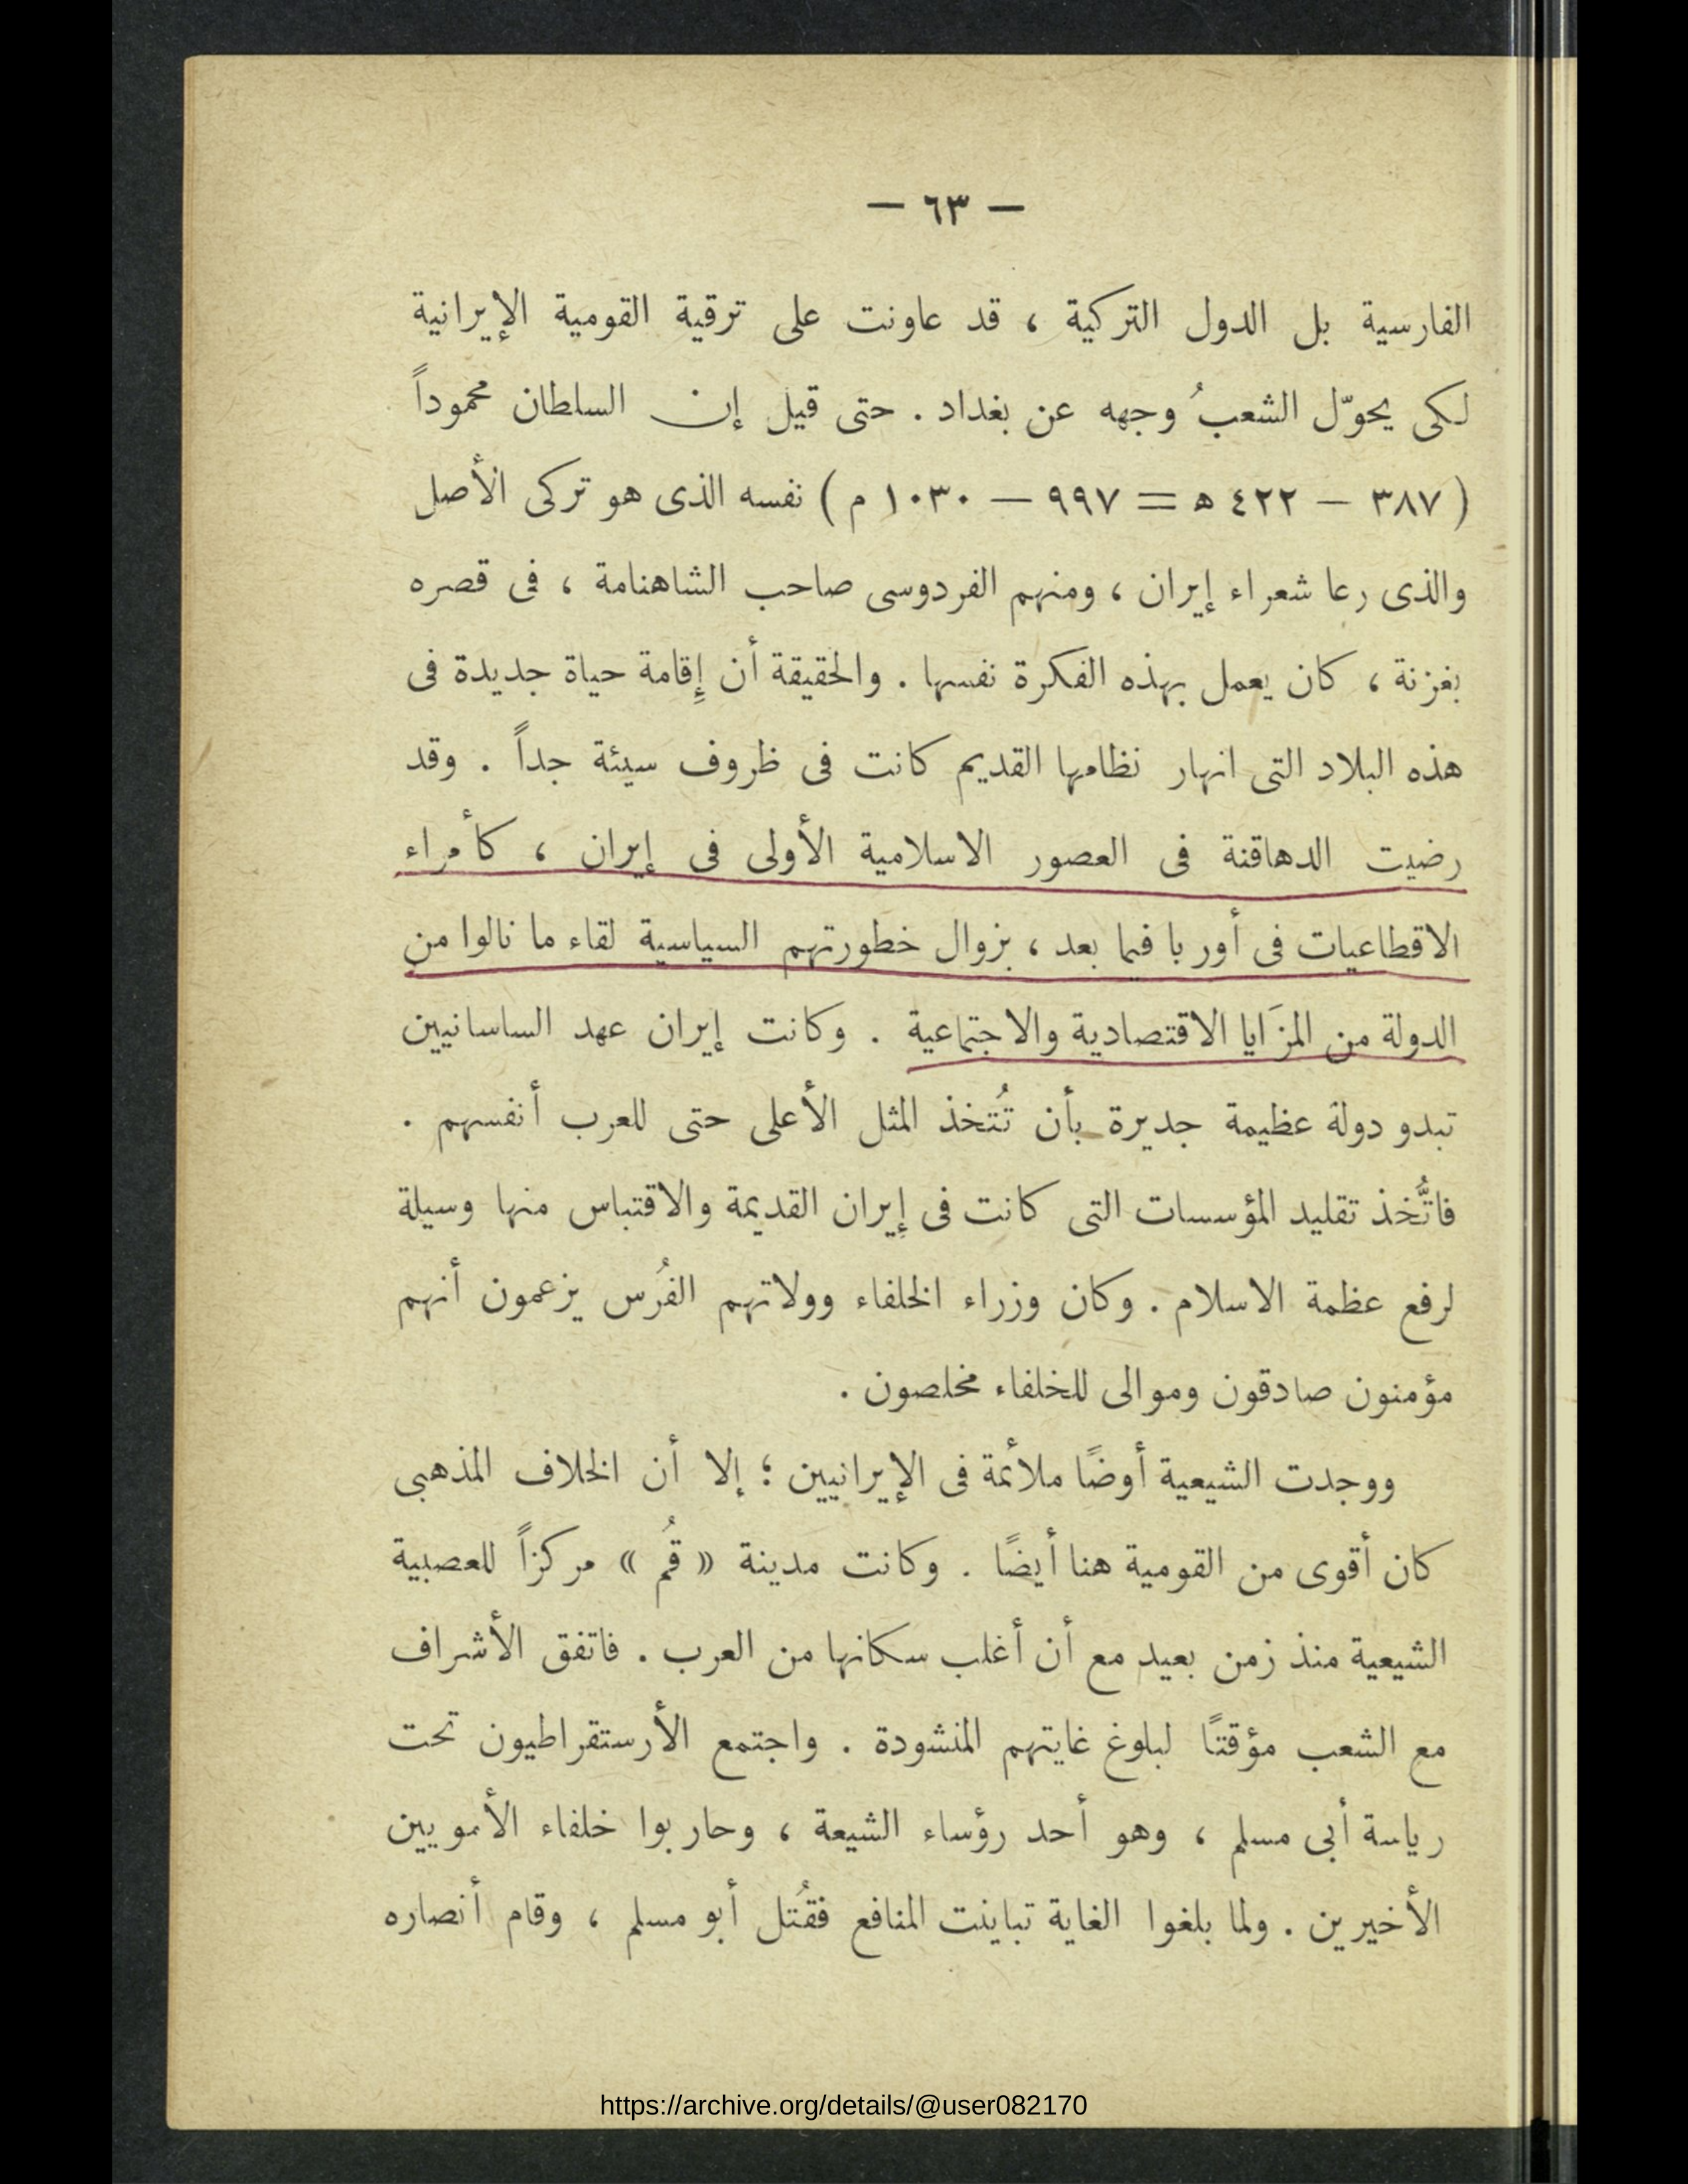 — ٦٣ —
الفارسية بل الدول التركية ، قد عاونت على ترقية القومية الإيرانية
لكى يحوّل الشعبُ وجهه عن بغداد . حتى قيل إن السلطان محموداً
( ٣٨٧ — ٤٢٢ ه = ٩٩٧ — ١٠٣٠ م ) نفسه الذى هو تركى الأصل
والذى رعا شعراء إيران ، ومنهم الفردوسى صاحب الشاهنامة ، فى قصره
بغزنة ، كان يعمل بهذه الفكرة نفسها . والحقيقة أن إِقامة حياة جديدة فى
هذه البلاد التى انهار نظامها القديم كانت فى ظروف سيئة جداً . وقد
رضيت الدهاقنة فى العصور الاسلامية الأولى فى إيران ، كأمراء
الاقطاعيات فى أوربا فيما بعد ، بزوال خطورتهم السياسية لقاء ما نالوا من
الدولة من المزَايا الاقتصادية والاجتماعية . وكانت إيران عهد الساسانيين
تبدو دولة عظيمة جديرة بأن تُتخذ المثل الأعلى حتى للعرب أنفسهم .
فاتُّخذ تقليد المؤسسات التى كانت فى إيران القديمة والاقتباس منها وسيلة
لرفع عظمة الاسلام . وكان وزراء الخلفاء وولاتهم الفُرس يزعمون أنهم
مؤمنون صادقون وموالى للخلفاء مخلصون .
ووجدت الشيعية أوضًا ملأئمة فى الإيرانيين ؛ إلا أن الخلاف المذهبى
كان أقوى من القومية هنا أيضًا . وكانت مدينة « قُم » مركزاً للعصبية
الشيعية منذ زمن بعيد مع أن أغلب سكانها من العرب . فاتفق الأشراف
مع الشعب مؤقتًا لبلوغ غايتهم المنشودة . واجتمع الأرستقراطيون تحت
رياسة أبى مسلم ، وهو أحد رؤساء الشيعة ، وحاربوا خلفاء الأمويين
الأخيرين . ولما بلغوا الغاية تباينت المنافع فقُتل أبو مسلم ، وقام أنصاره
https://archive.org/details/@user082170